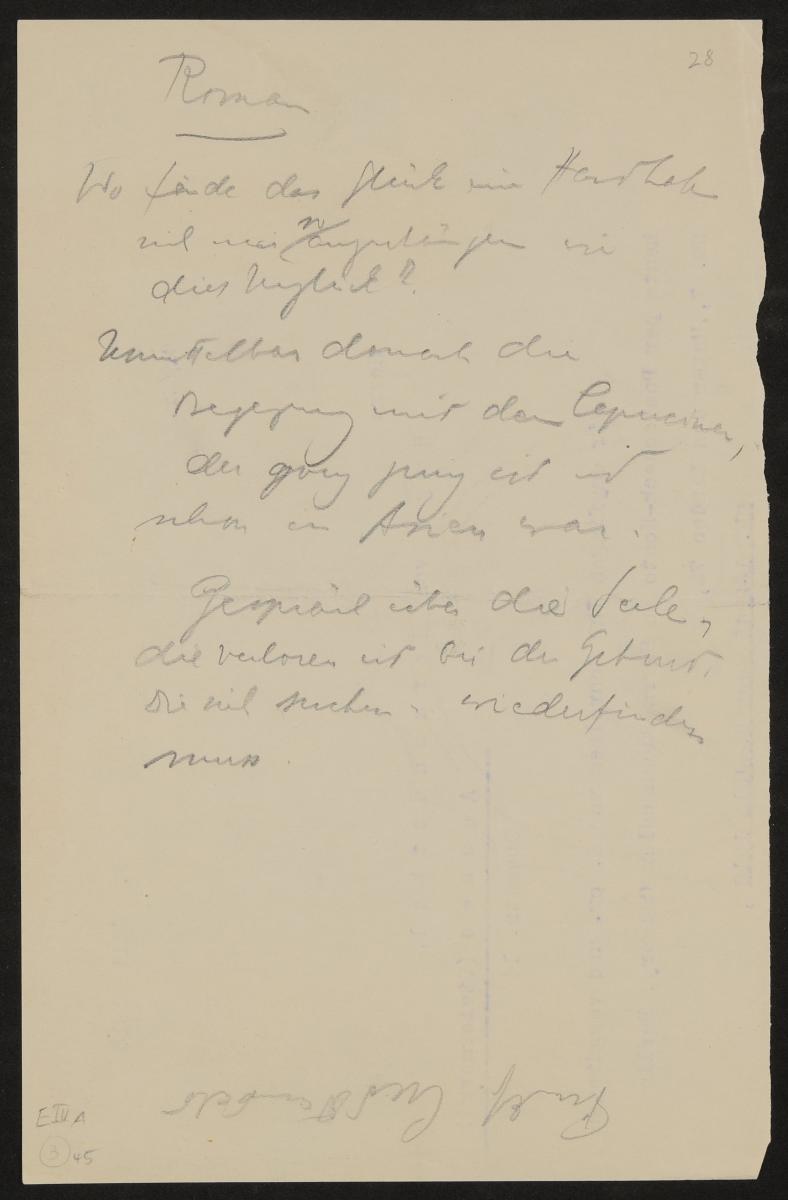 28
Roman
Wo fände das Glück eine Handhabe
sich neu anzuhängen wie
dies Unglück?
Unmittelbar danach die
Begegnung mit dem Capuciner,
der ganz jung ist und
schon in Asien war.
Gespräch über die Seele,
die verloren ist bei der Geburt.
Die sich suchen u. wiederfinden
muss.
E IV A
3 45